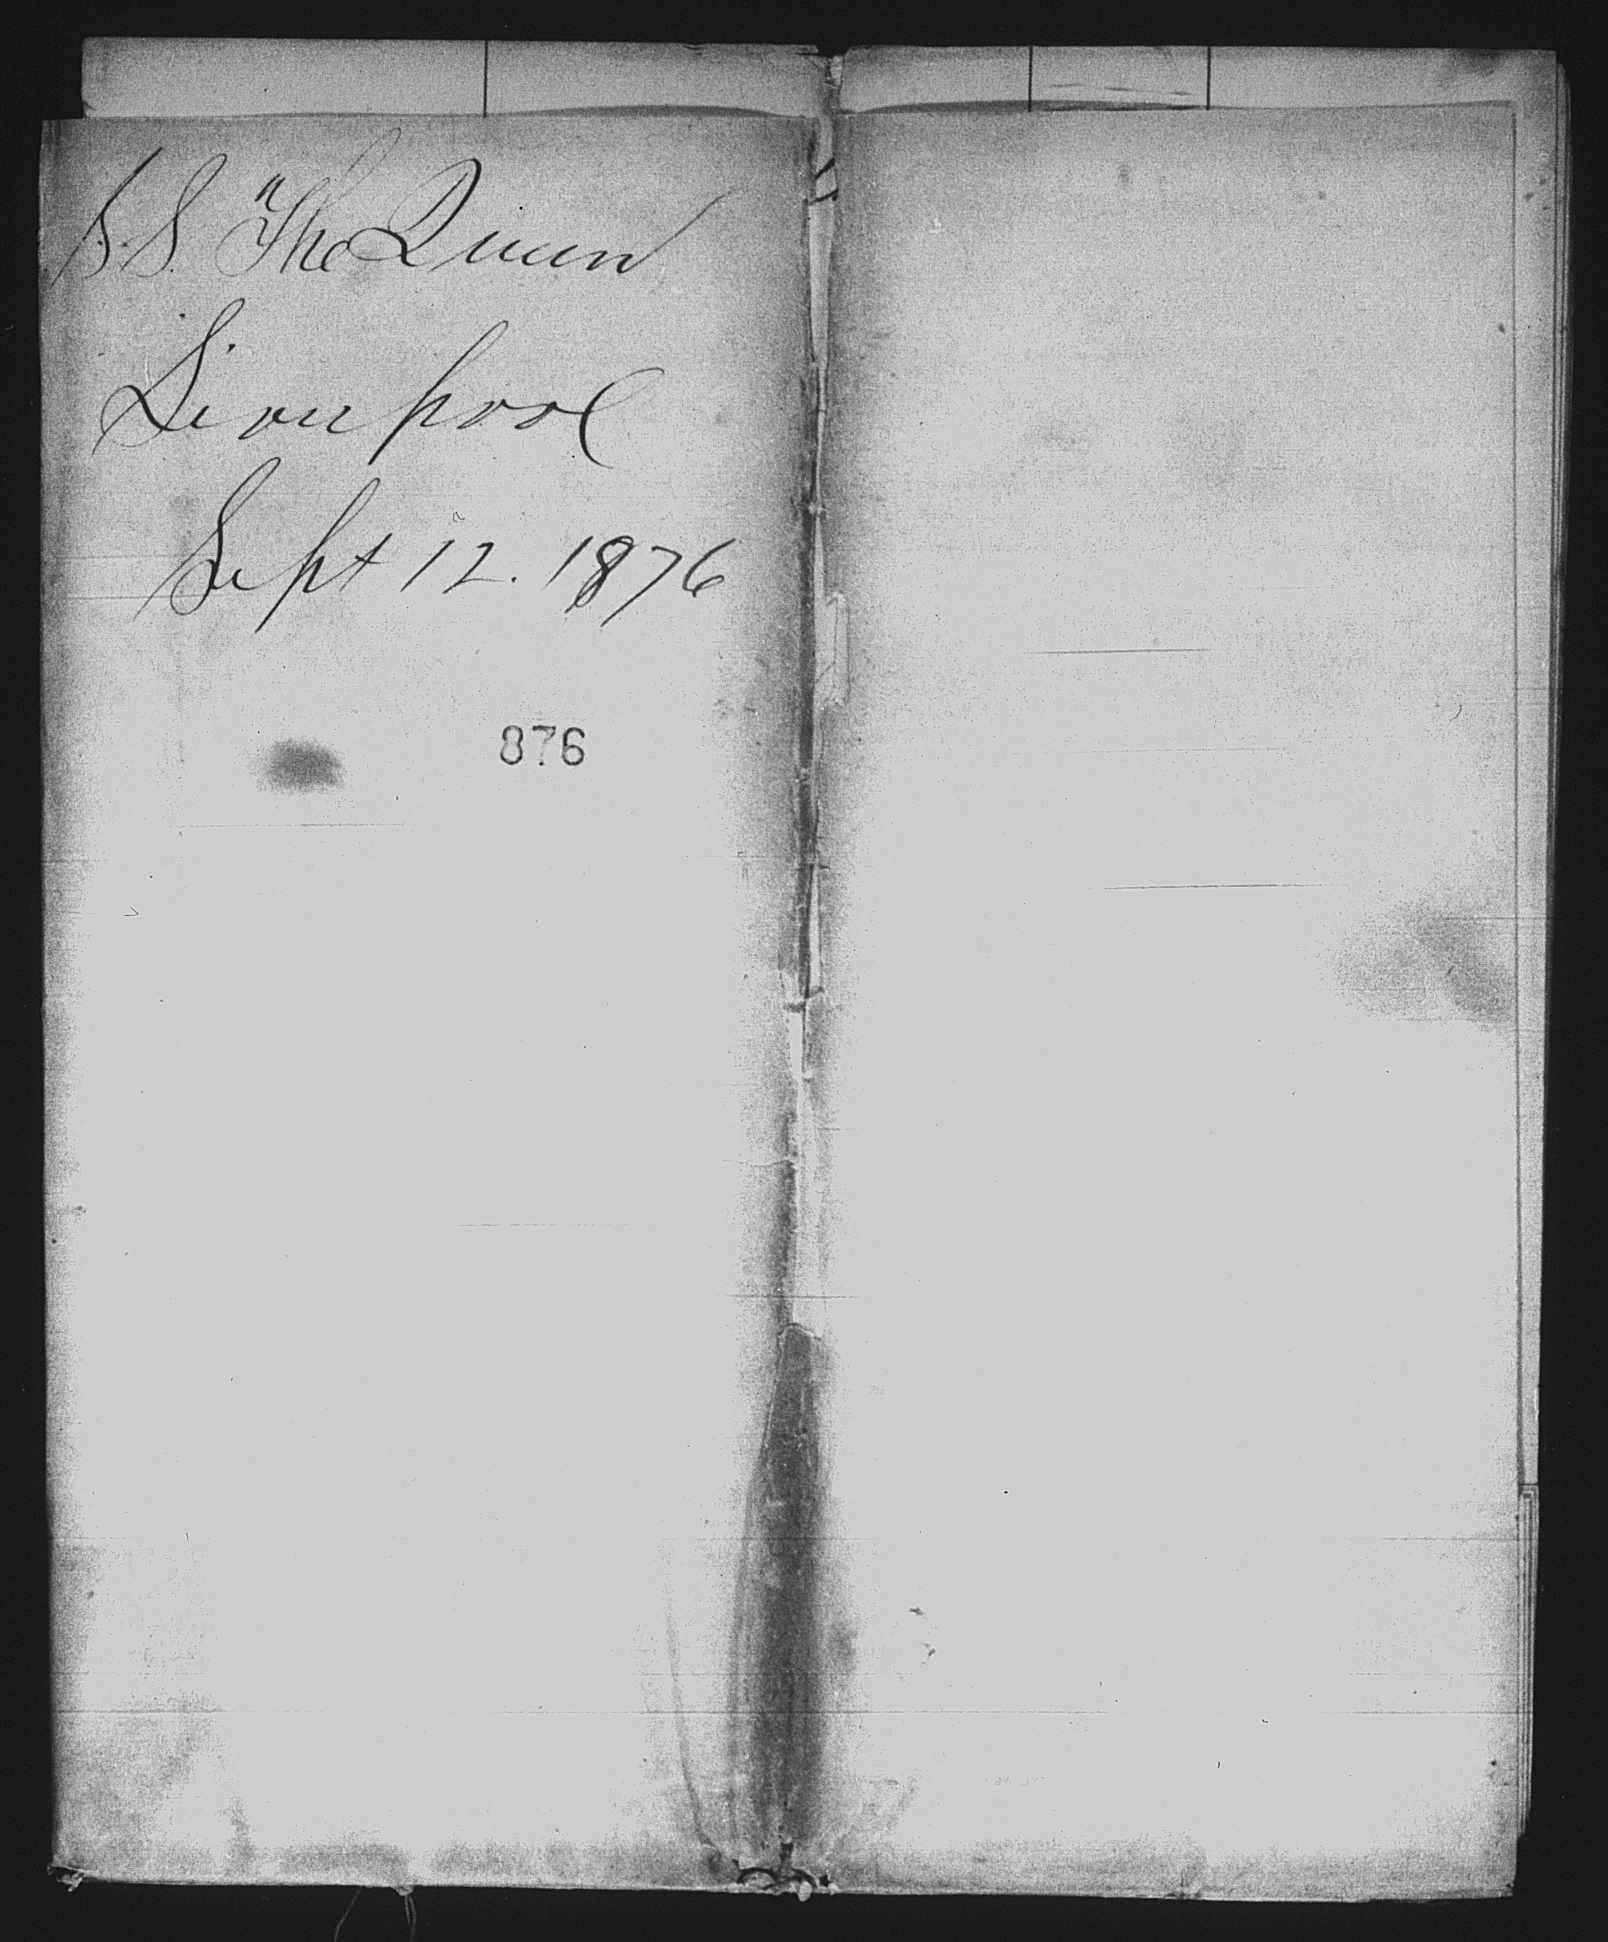 S.S. "The Queen
Liverpool
Sept 12. 1876
876